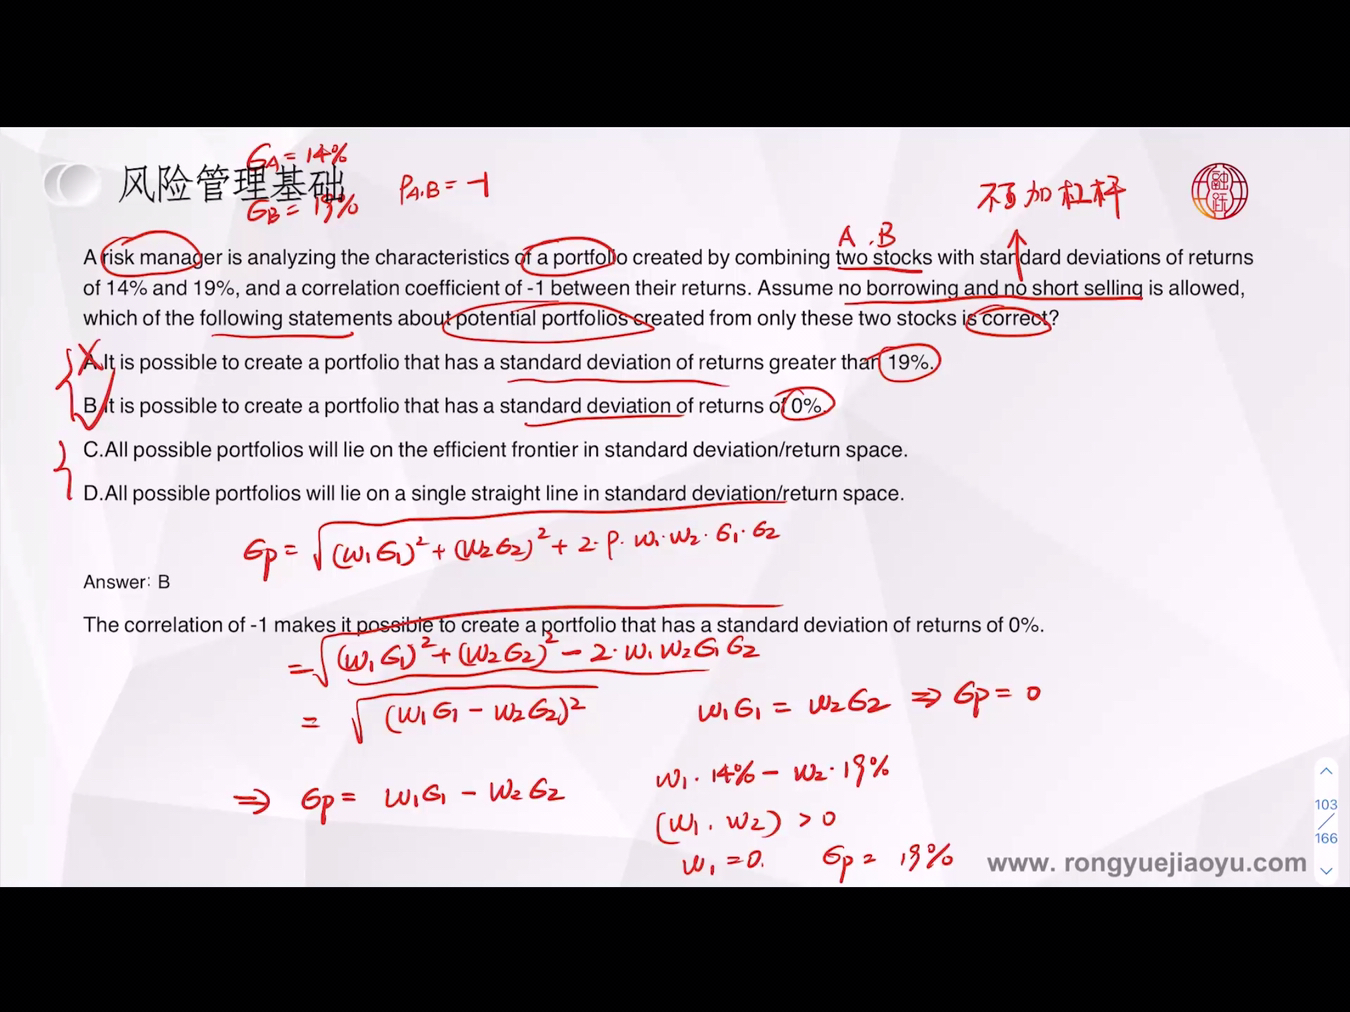 σA = 14%
风险管理基础
σB = 19%
ρA.B = -1
不可加杠杆
融跃
A . B
A risk manager is analyzing the characteristics of a portfolio created by combining two stocks with standard deviations of returns
of 14% and 19%, and a correlation coefficient of -1 between their returns. Assume no borrowing and no short selling is allowed,
which of the following statements about potential portfolios created from only these two stocks is correct?
A.It is possible to create a portfolio that has a standard deviation of returns greater than 19%.
B.It is possible to create a portfolio that has a standard deviation of returns of 0%.
C.All possible portfolios will lie on the efficient frontier in standard deviation/return space.
D.All possible portfolios will lie on a single straight line in standard deviation/return space.
σp = √(w1σ1)² + (w2σ2)² + 2·ρ·w1·w2·σ1·σ2
Answer: B
The correlation of -1 makes it possible to create a portfolio that has a standard deviation of returns of 0%.
= √(w1σ1)² + (w2σ2)² - 2·w1w2σ1σ2
= √(w1σ1 - w2σ2)²
w1σ1 = w2σ2 ⇒ σp = 0
⇒ σp = w1σ1 - w2σ2
w1·14% - w2·19%
(w1.w2) > 0
w1 = 0. σp = 19%
103
166
www. rongyuejiaoyu.com